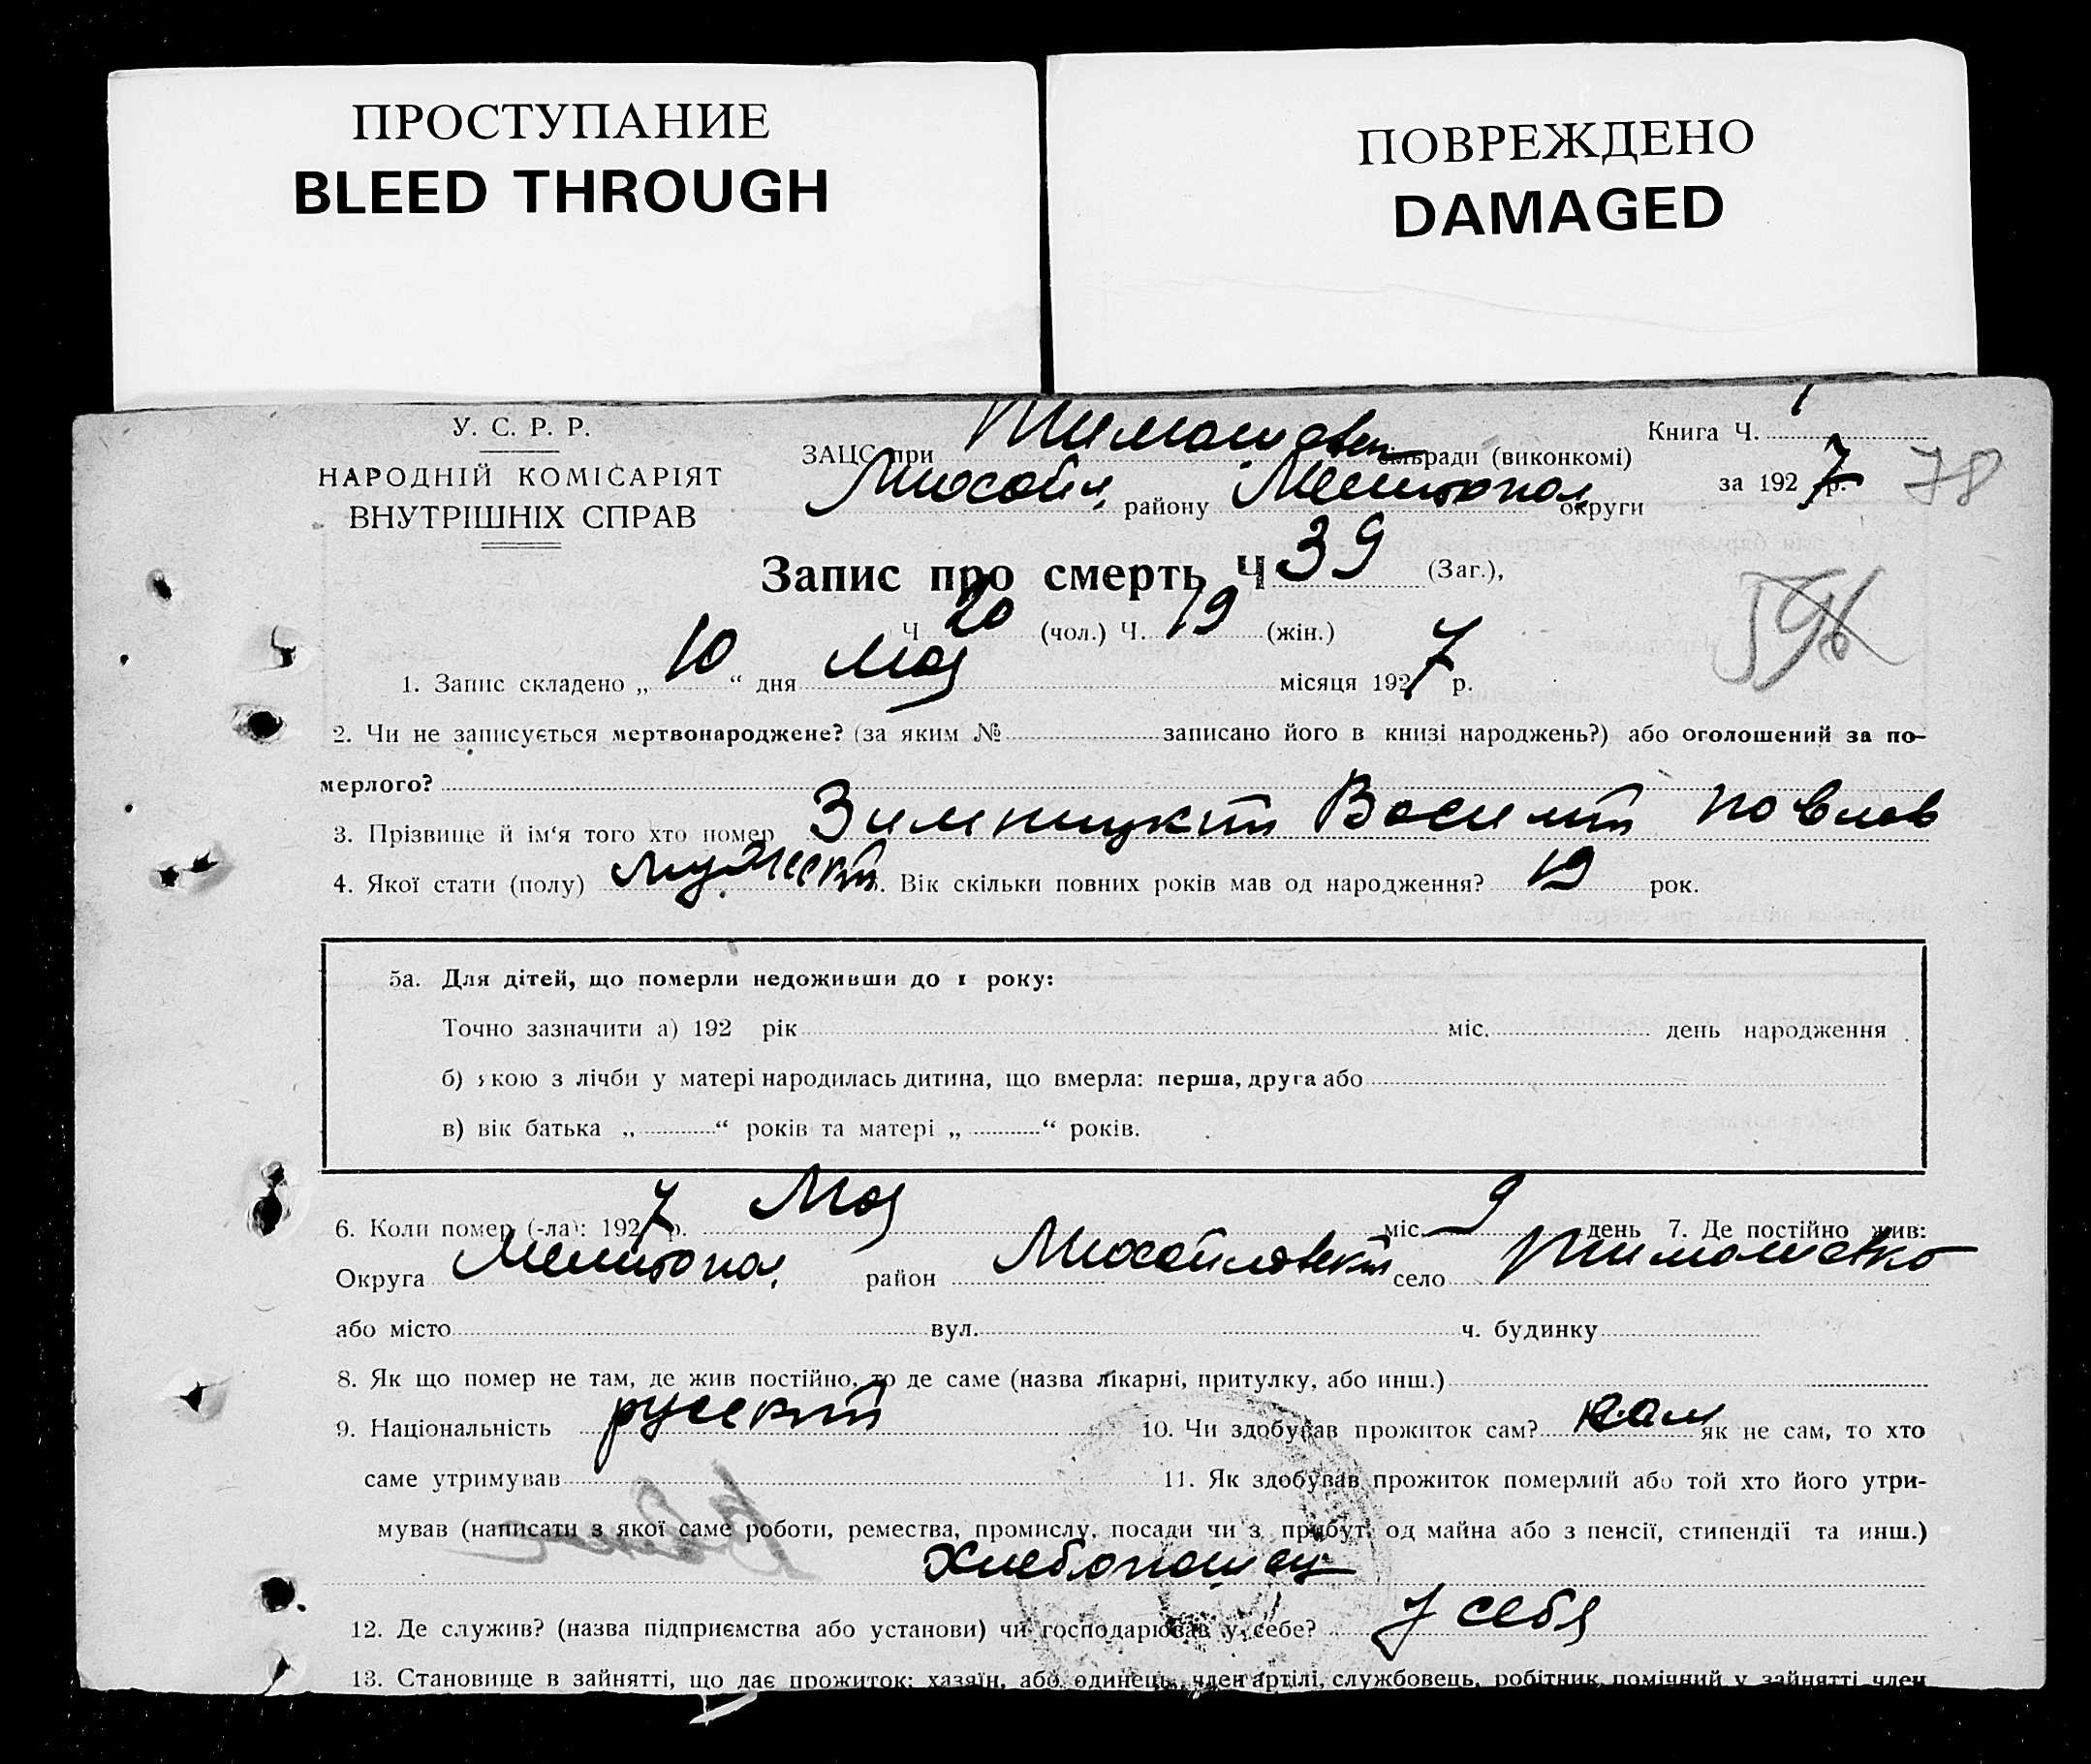 ПРОСТУПАНИЕ
BLEED THROUGH
ПОВРЕЖДЕНО
DAMAGED
У. С. Р. Р.
НАРОДНІЙ КОМІСАРІЯТ
ВНУТРІШНІХ СПРАВ
ЗАЦС при Тимошовск сільради (виконкомі)
Михайл району Мелитопол округи
Книга Ч. 1
за 1927 р. 78
Запис про смерть Ч 39 (Заг.),
596
Ч 20 (чол.) Ч. 19 (жін.)
1. Запис складено „ 10 “ дня Мая місяця 1927 р.
2. Чи не записується мертвонароджене? (за яким № записано його в книзі народжень?) або оголошений за по-
мерлого?
3. Прізвище й ім‘я того хто помер Зимницкий Василий Павлов
4. Якої стати (полу) мужеский. Вік скільки повних років мав од народження? 19 рок.
5а. Для дітей, що померли недоживши до 1 року:
Точно зазначити а) 192 рік міс. день народження
б) якою з лічби у матері народилась дитина, що вмерла: перша, друга або
в) вік батька „ “ років та матері „ “ років.
6. Коли помер (-ла): 1927 р. Мая міс. 9 день 7. Де постійно жив:
Округа Мелитопол район Михайловский село Тимошовко
або місто вул. ч. будинку
8. Як що помер не там, де жив постійно, то де саме (назва лікарні, притулку, або инш.)
9. Національність русский 10. Чи здобував прожиток сам? сам як не сам, то хто
саме утримував 11. Як здобував прожиток померлий або той хто його утри-
мував (написати з якої саме роботи, ремества, промислу, посади чи з прибут. од майна або з пенсії, стипендії та инш.)
Хлебопашец
12. Де служив? (назва підприємства або установи) чи господарював у себе? У себя
13. Становище в зайнятті, що дає прожиток: хазяїн, або одинець, член артілі, службовець, робітник, помічний у зайнятті член